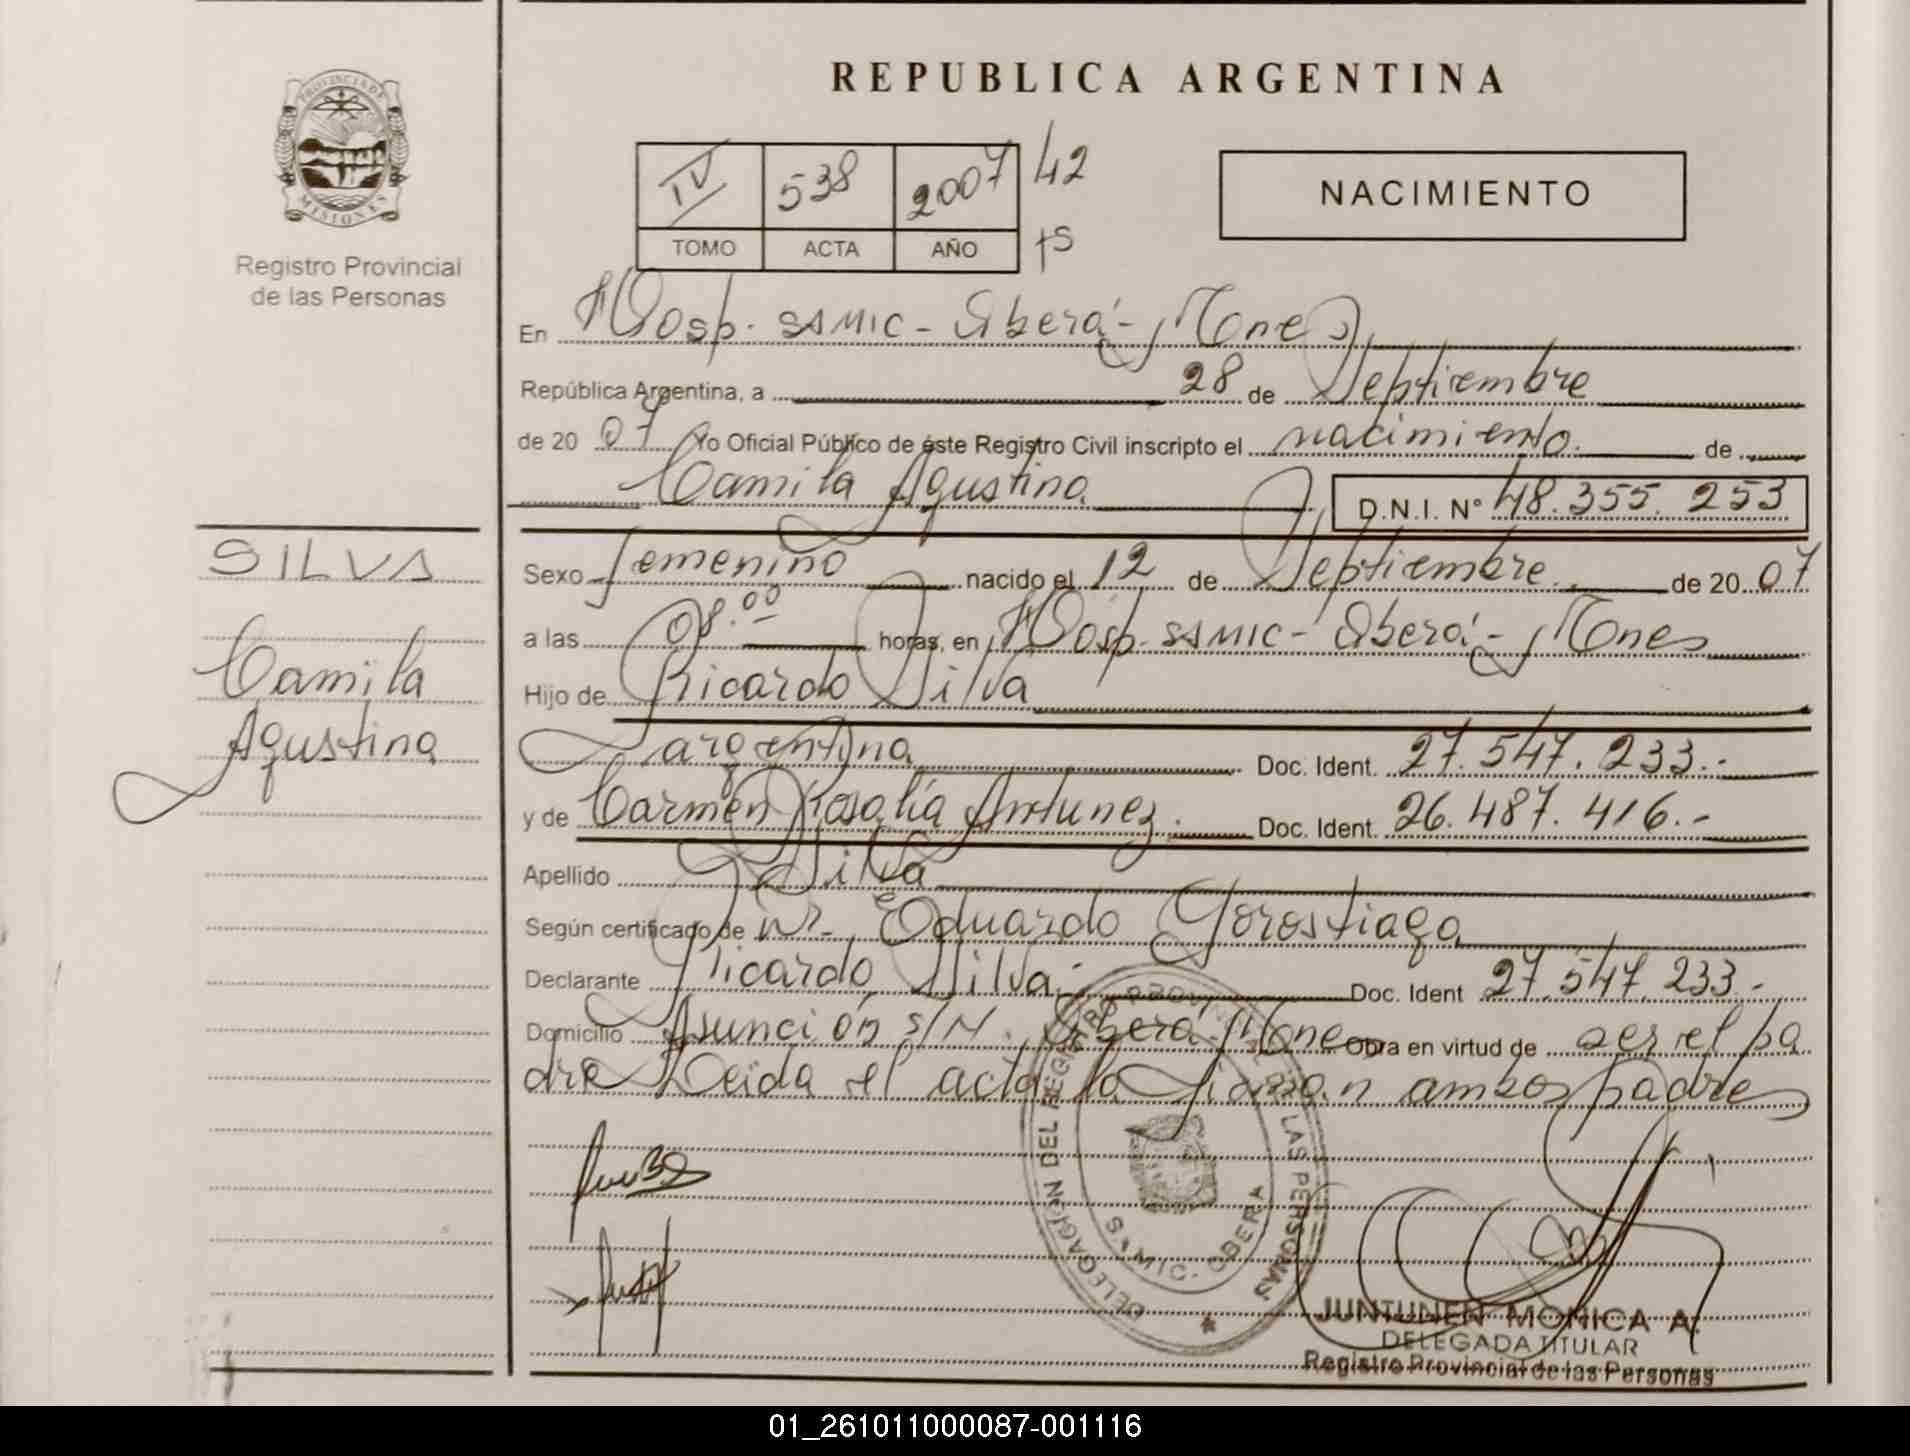 PROVINCIA DE
MISIONES
Registro Provincial
de las Personas
SILVA
Camila
Agustina
REPUBLICA ARGENTINA
IV 538 2007 42
TOMO ACTA AÑO
NACIMIENTO
En Hosp. SAMIC - Oberá - Mones
República Argentina, a 28 de Septiembre
de 2007 Yo Oficial Público de éste Registro Civil inscripto el nacimiento. de
Camila Agustina D.N.I. N° 48.355.253
Sexo femenino nacido el 12 de Septiembre de 2007
a las 08:00 horas, en Hosp. SAMIC - Oberá - Mones
Hijo de Ricardo Silva
argentina Doc. Ident. 27.547.233.-
y de Carmen Rosalía Antunez. Doc. Ident. 26.487.416.-
Apellido Silva
Según certificado de Eduardo Gorostiaga
Declarante Ricardo Silva.- Doc. Ident 27.547.233.-
Domicilio Asunción S/N. Oberá Mones Obra en virtud de ser el pa
dre Leida el acta la firman ambos padres
DELEGACION DEL REGISTRO PROVINCIAL DE LAS PERSONAS
SAMIC - OBERA
JUNTUNEN MONICA A.
DELEGADA TITULAR
Registro Provincial de las Personas
01_261011000087-001116